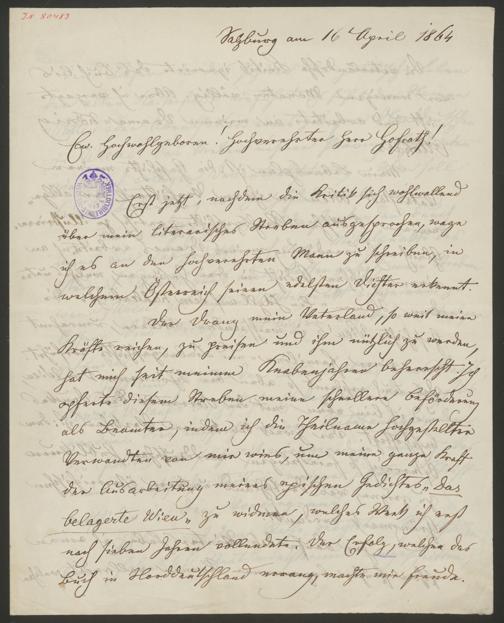 IN 80483
Salzburg am 16t April 1864
Ew. Hochwohlgeboren! Hochverehrter Herr Hofrath!
Erst jetzt, nachdem die Kritik sich wohlwollend
über mein literarisches Streben ausgesprochen, wage
ich es an den hochverehrten Mann zu schreiben, in
welchem Österreich seinen edelsten Dichter erkennt.
Der Drang mein Vaterland, so weit meine
Kräfte reichen, zu preisen und ihm nützlich zu werden,
hat mich seit meinen Knabenjahren beherrscht. Ich
opferte diesem Streben meine schnellere Beförderung
als Beamter, indem ich die Theilname hochgestellter
Verwandten von mir wies, um meine ganze Kraft
der Ausarbeitung meines epischen Gedichtes „Das
belagerte Wien„ zu widmen, welches Werk ich erst
nach sieben Jahren vollendete. Der Erfolg, welchen das
Buch in Norddeutschland errang, machte mir Freude.